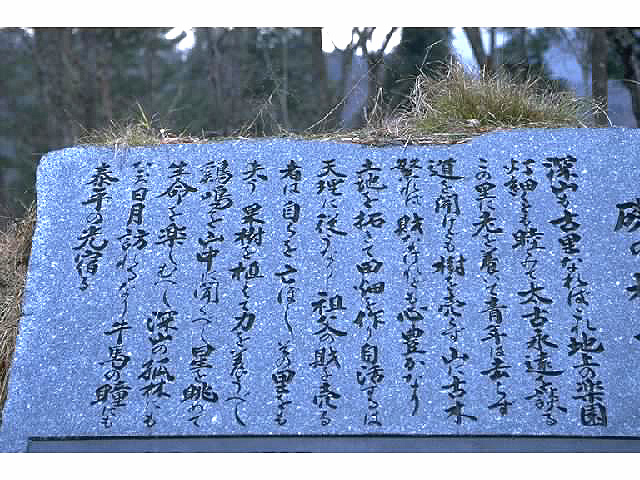 深山も古里なればこれ地上の楽園
は細々とも睦みて太古永遠を語る
この里に老を養いて青年は去らず
道を開けども樹を売らず山に古木
繁れば財なけれども心豊かなり
土地を拓いて田畑を作り自活するは
天理に従うなり 祖父の財を売る
者は自らを亡ぼし その里をも
失う 果樹を植えて力を養うべし
鶏鳴を山中に聞くべし 星を眺めて
生命を楽しむべし 深山の孤林にも
なお日月訪れるなり 牛馬の瞳にも
泰平の光宿る